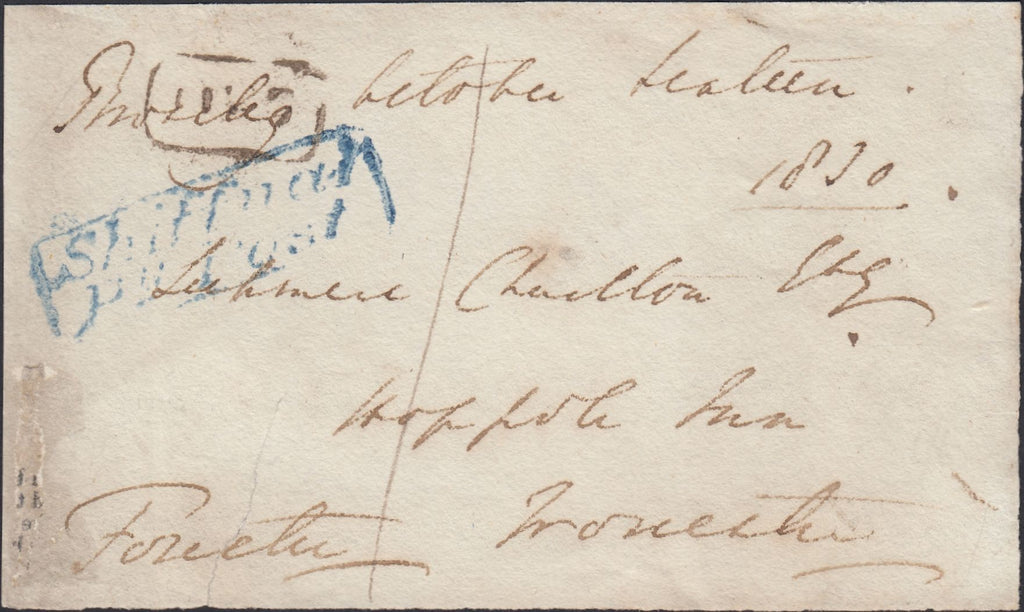 Broseley October sixteen
1830
Shiffnal
Penny Post
Lechmere Charlton Esq
Hoppole Inn
Worcester
Forester